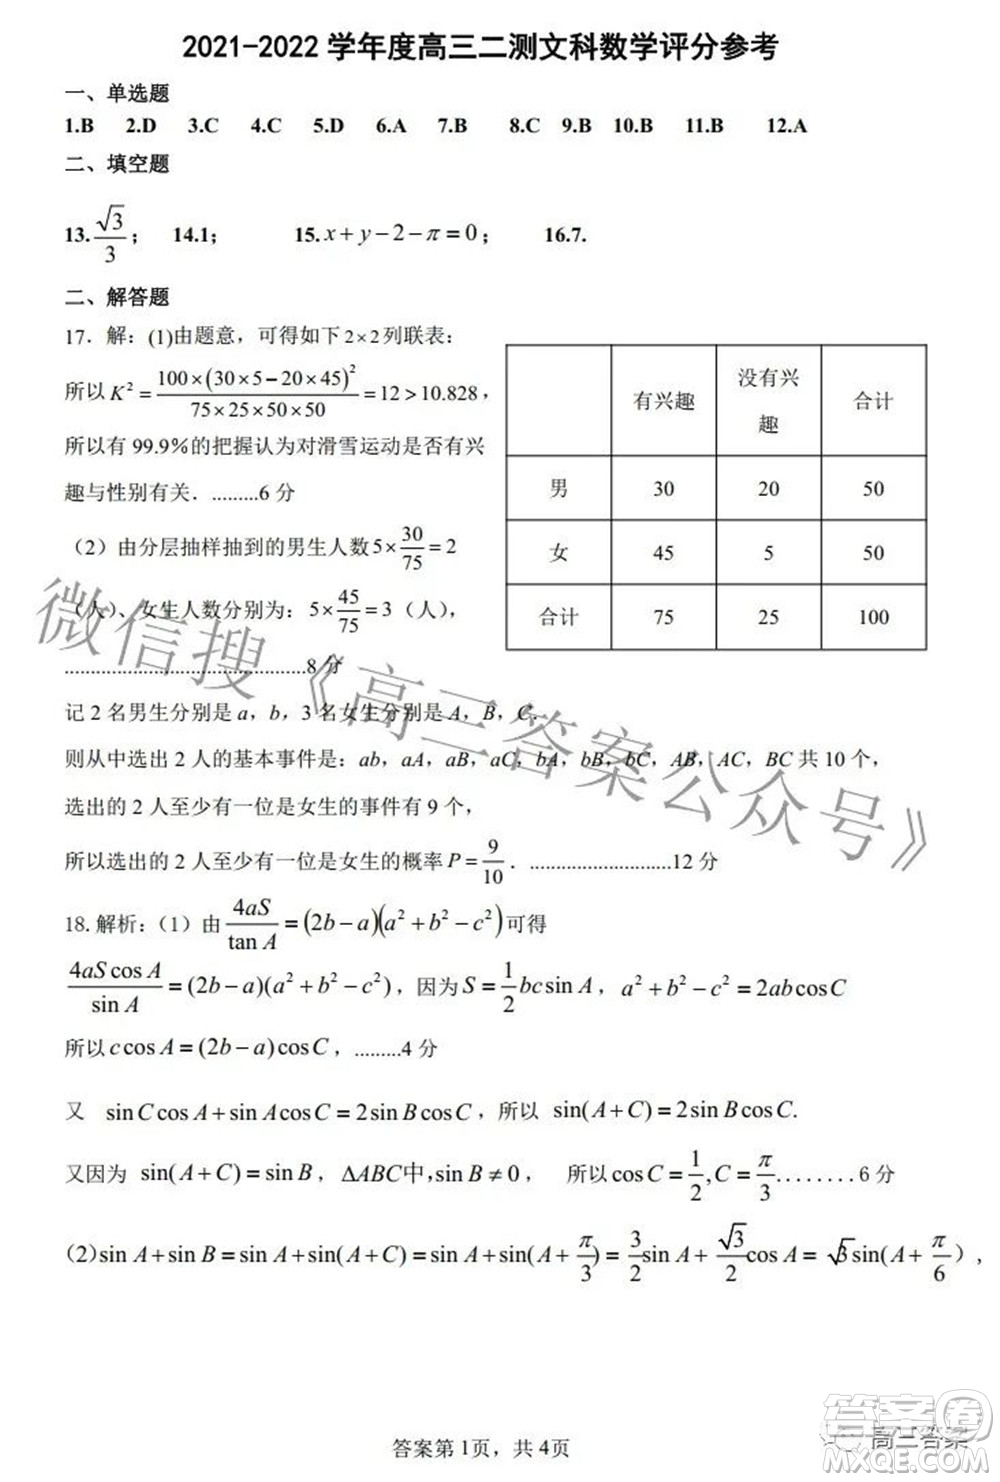 2021-2022 学年度高三二测文科数学评分参考
一、单选题
1.B 2.D 3.C 4.C 5.D 6.A 7.B 8.C 9.B 10.B 11.B 12.A
二、填空题
13.√3/3； 14.1； 15.x+y-2-π=0； 16.7.
二、解答题
17．解：(1)由题意，可得如下 2×2 列联表：
所以 K²=100×(30×5-20×45)²/(75×25×50×50)=12>10.828，
所以有 99.9％的把握认为对滑雪运动是否有兴
趣与性别有关．.........6 分
有兴趣 没有兴趣 合计
男 30 20 50
女 45 5 50
合计 75 25 100
（2）由分层抽样抽到的男生人数 5×30/75=2
（人）、女生人数分别为：5×45/75=3（人），
..........................................8 分
记 2 名男生分别是 a，b，3 名女生分别是 A，B，C．
则从中选出 2 人的基本事件是：ab，aA，aB，aC，bA，bB，bC，AB，AC，BC 共 10 个，
选出的 2 人至少有一位是女生的事件有 9 个，
所以选出的 2 人至少有一位是女生的概率 P=9/10．.........................12 分
18.解析：（1）由 4aS/tan A=(2b-a)(a²+b²-c²)可得
4aS cos A/sin A=(2b-a)(a²+b²-c²)，因为 S=1/2 bcsin A，a²+b²-c²=2abcosC
所以 c cos A=(2b-a)cosC，.........4 分
又 sinCcos A+sin AcosC=2sin BcosC，所以 sin(A+C)=2sin BcosC.
又因为 sin(A+C)=sin B，ΔABC中,sin B≠0， 所以 cosC=1/2,C=π/3........6 分
(2)sin A+sin B=sin A+sin(A+C)=sin A+sin(A+π/3)=3/2 sin A+√3/2 cos A=√3sin(A+π/6)，
答案第 1页，共 4页
微信搜《高三答案公众号》
高三答案
答案圈
MXQE.COM